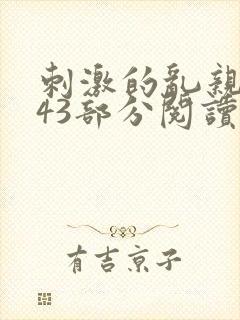 刺激的乱親
43部分閱讀
有吉京子